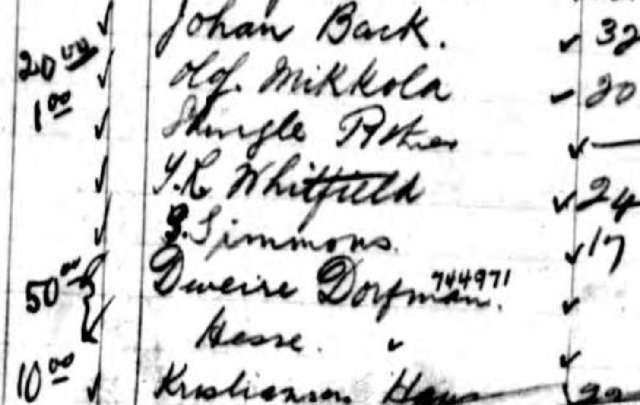 Johan Back. ✓ 32
20 00 ✓ Olof. Mikkola ✓ 20
1 00 ✓ ✓ —
✓ Whitfield ✓ 24
✓ Simmons. ✓ 17
50 00 Dweire Dorfman. 744971 ✓
✓ Hesse. " ✓
10 00 ✓ Kristiansen Hans 22